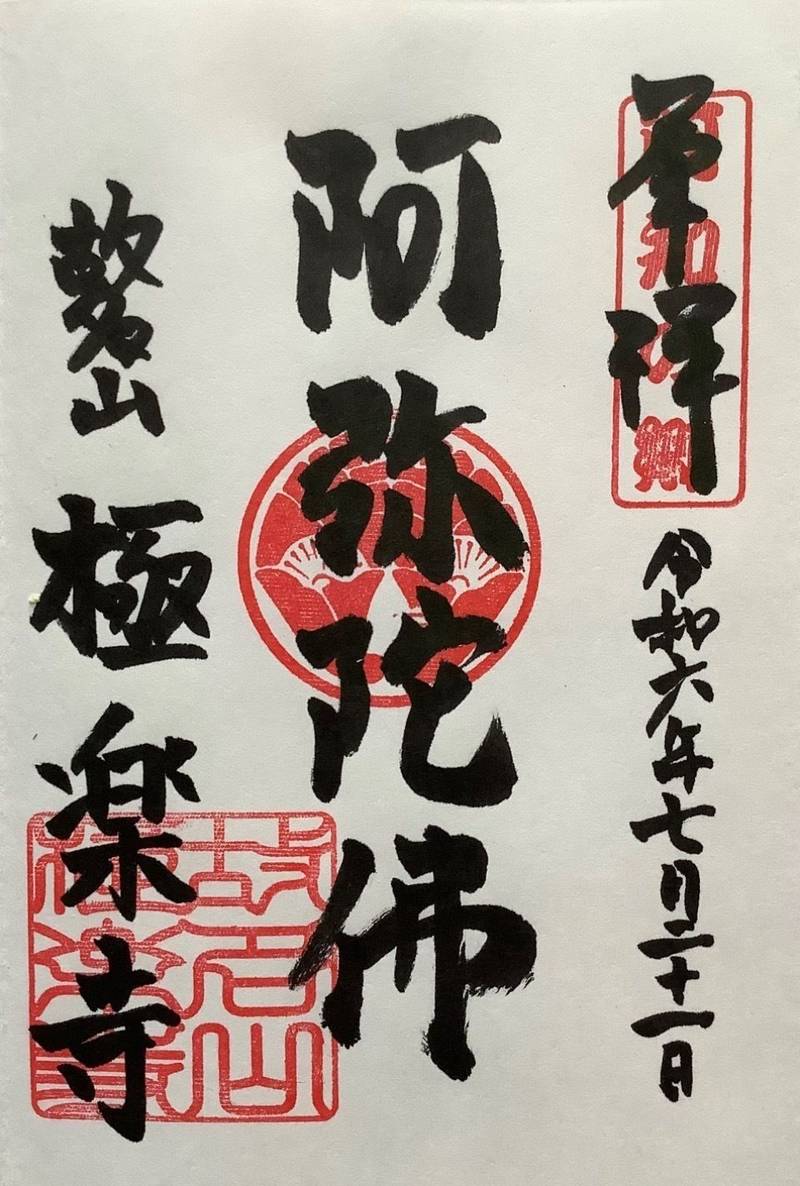 奉拝
令和六年七月二十一日
阿弥陀佛
山
極楽寺